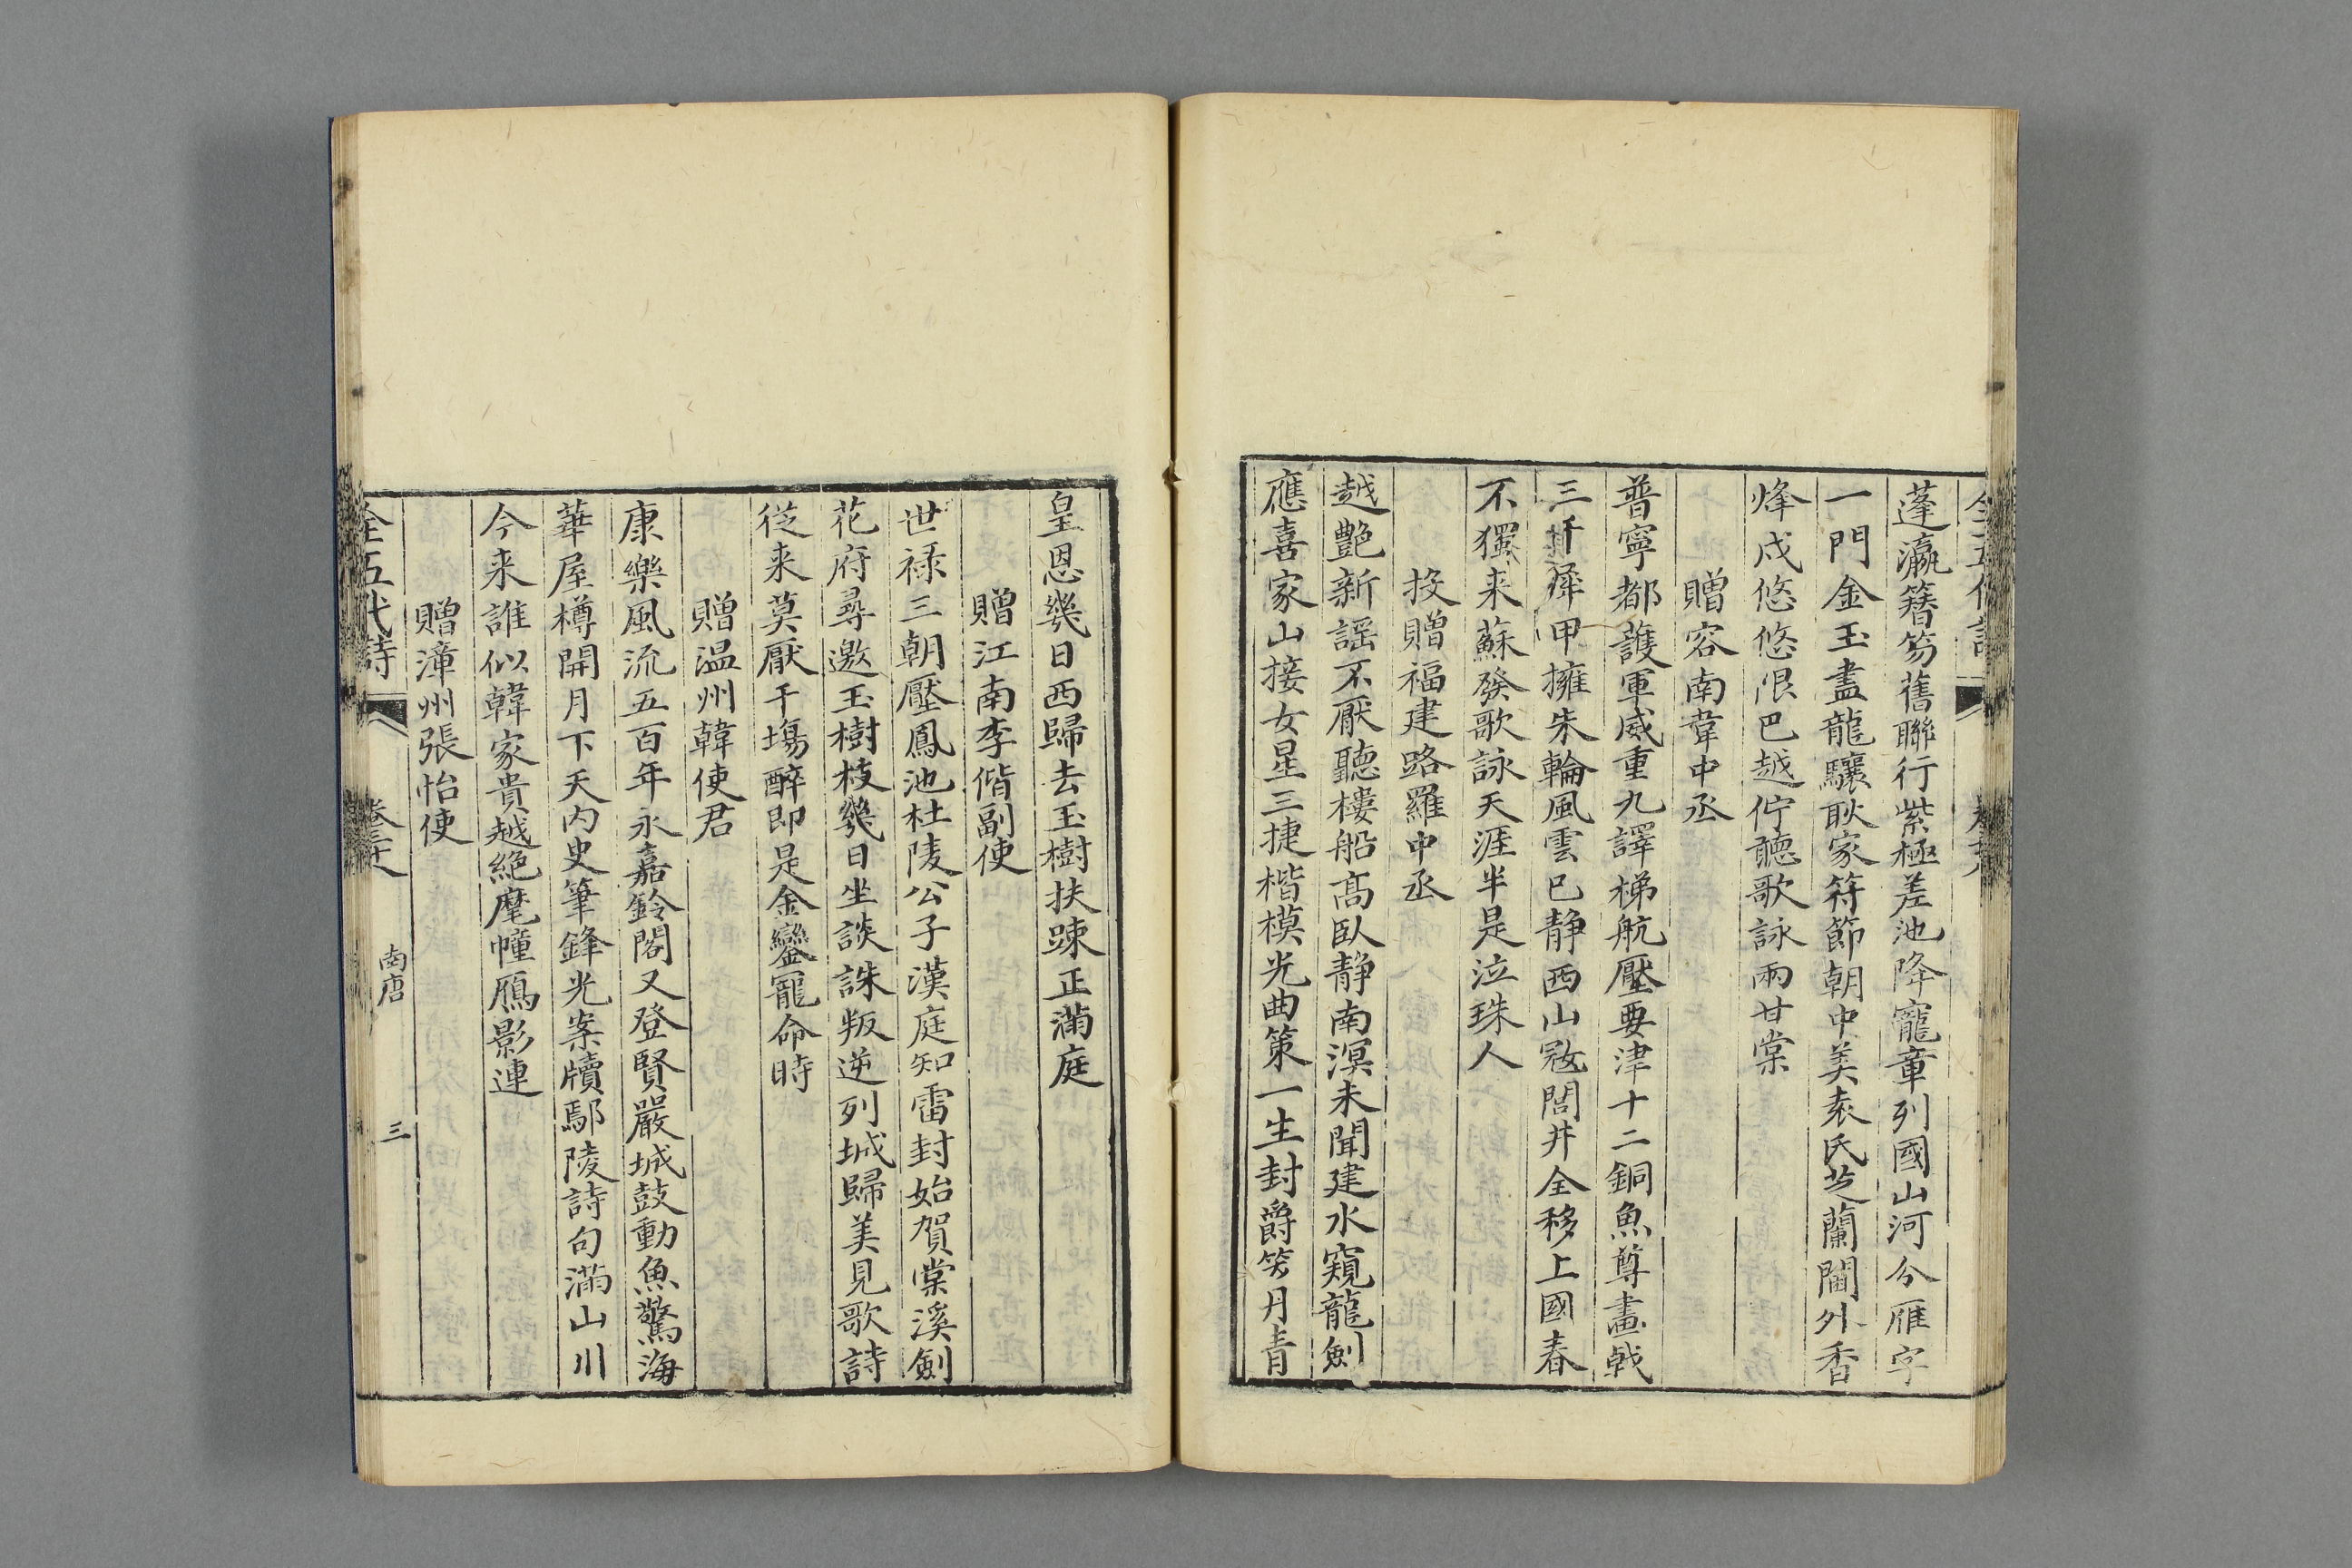 蓬瀛簪笏舊聯行紫極差池降寵章列國山河分雁字
一門金玉盡龍驤耿家符節朝中美袁氏芝蘭閫外香
烽戍悠悠限巴越佇聽歌詠兩甘棠
贈容南韋中丞
普寧都護軍威重九譯梯航壓要津十二銅魚尊畫戟
三千犀甲擁朱輪風雲已静西山寇閭井全移上國春
不獨来蘇發歌詠天涯半是泣珠人
投贈福建路羅中丞
越艷新謡不厭聽樓船高臥静南溟未聞建水窺龍劍
應喜家山接女星三捷楷模光曲策一生封爵笑丹青
皇恩幾日西歸去玉樹扶踈正滿庭
贈江南李偕副使
世禄三朝壓鳳池杜陵公子漢庭知雷封始賀棠溪劍
花府尋邀玉樹枝幾日坐談誅叛逆列城歸美見歌詩
從来莫厭千塲醉即是金鑾寵命時
贈温州韓使君
康樂風流五百年永嘉鈴閣又登賢嚴城鼓動魚驚海
華屋樽開月下天内史筆鋒光案牘鄢陵詩句滿山川
今来誰似韓家貴越絶麾幢鴈影連
贈漳州張怡使
全五代詩 南唐 三